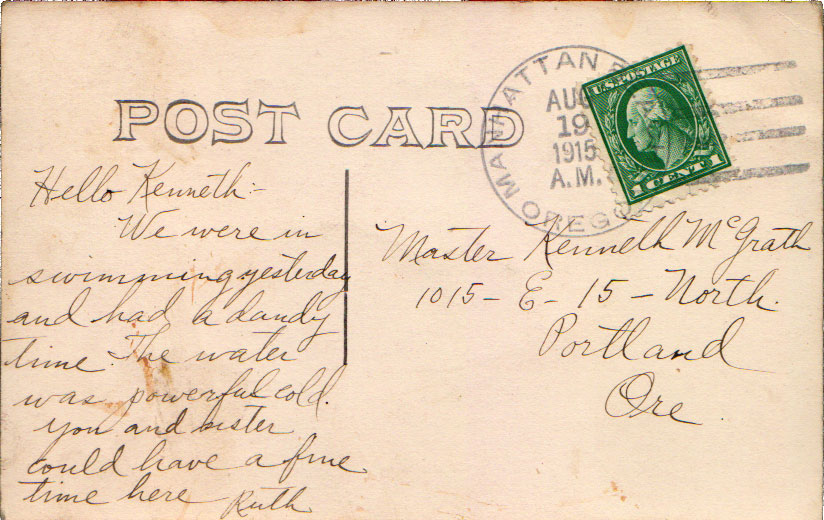 POST CARD
MANHATTAN
AUG
19
1915
A.M.
OREGO
U.S. POSTAGE
1 CENT 1
Hello Kenneth:-
We were in
swimming yesterday
and had a dandy
time. The water
was powerful cold.
you and sister
could have a fine
time here Ruth
Master Kenneth McGrath
1015 - E - 15 - North.
Portland
Ore